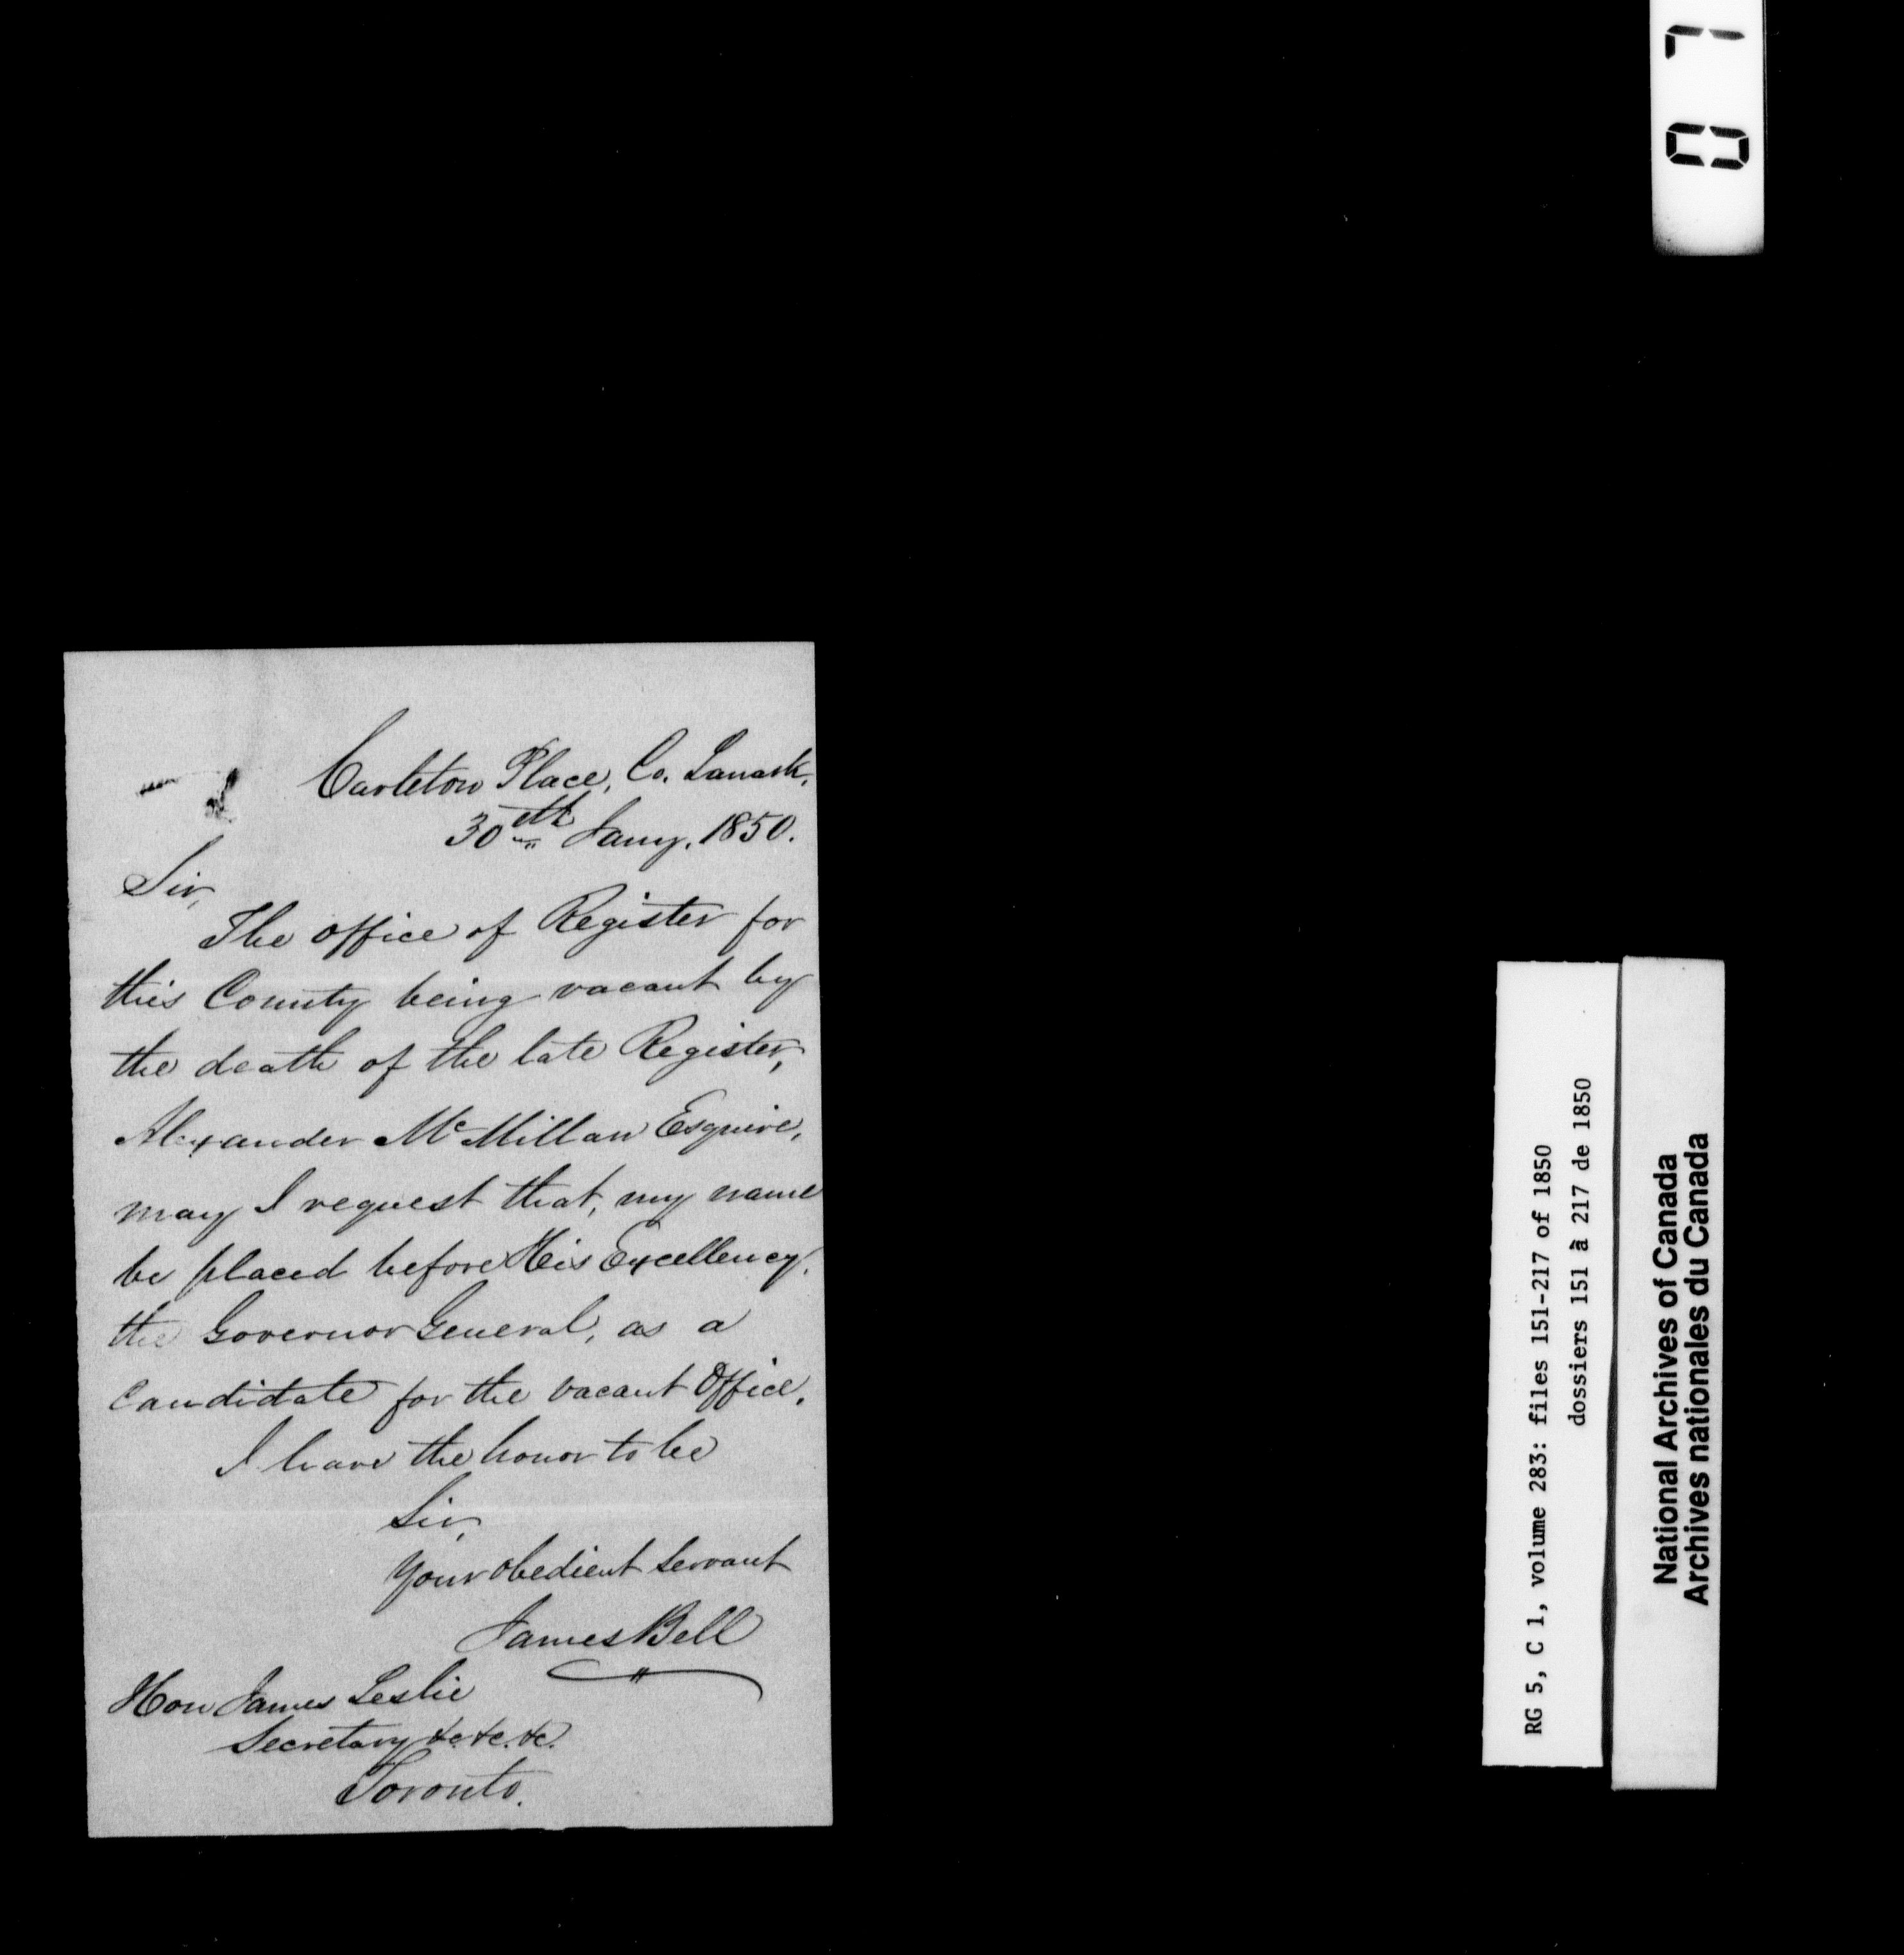 Carleton Place, Co. Lanark,
30th Jany. 1850.
Sir,
The office of Register for
this County being vacant by
the death of the late Register,
Alexander McMillan Esquire,
may I request that, my name
be placed before His Excellency.
the Governor General, as a
Candidate for the vacant Office.
I have the honor to be
Sir,
Your obedient servant
James Bell
Hon James Leslie
Secretary &c. &c. &c.
Toronto.
RG 5, C 1, volume 283: files 151-217 of 1850
dossiers 151 à 217 de 1850
National Archives of Canada
Archives nationales du Canada